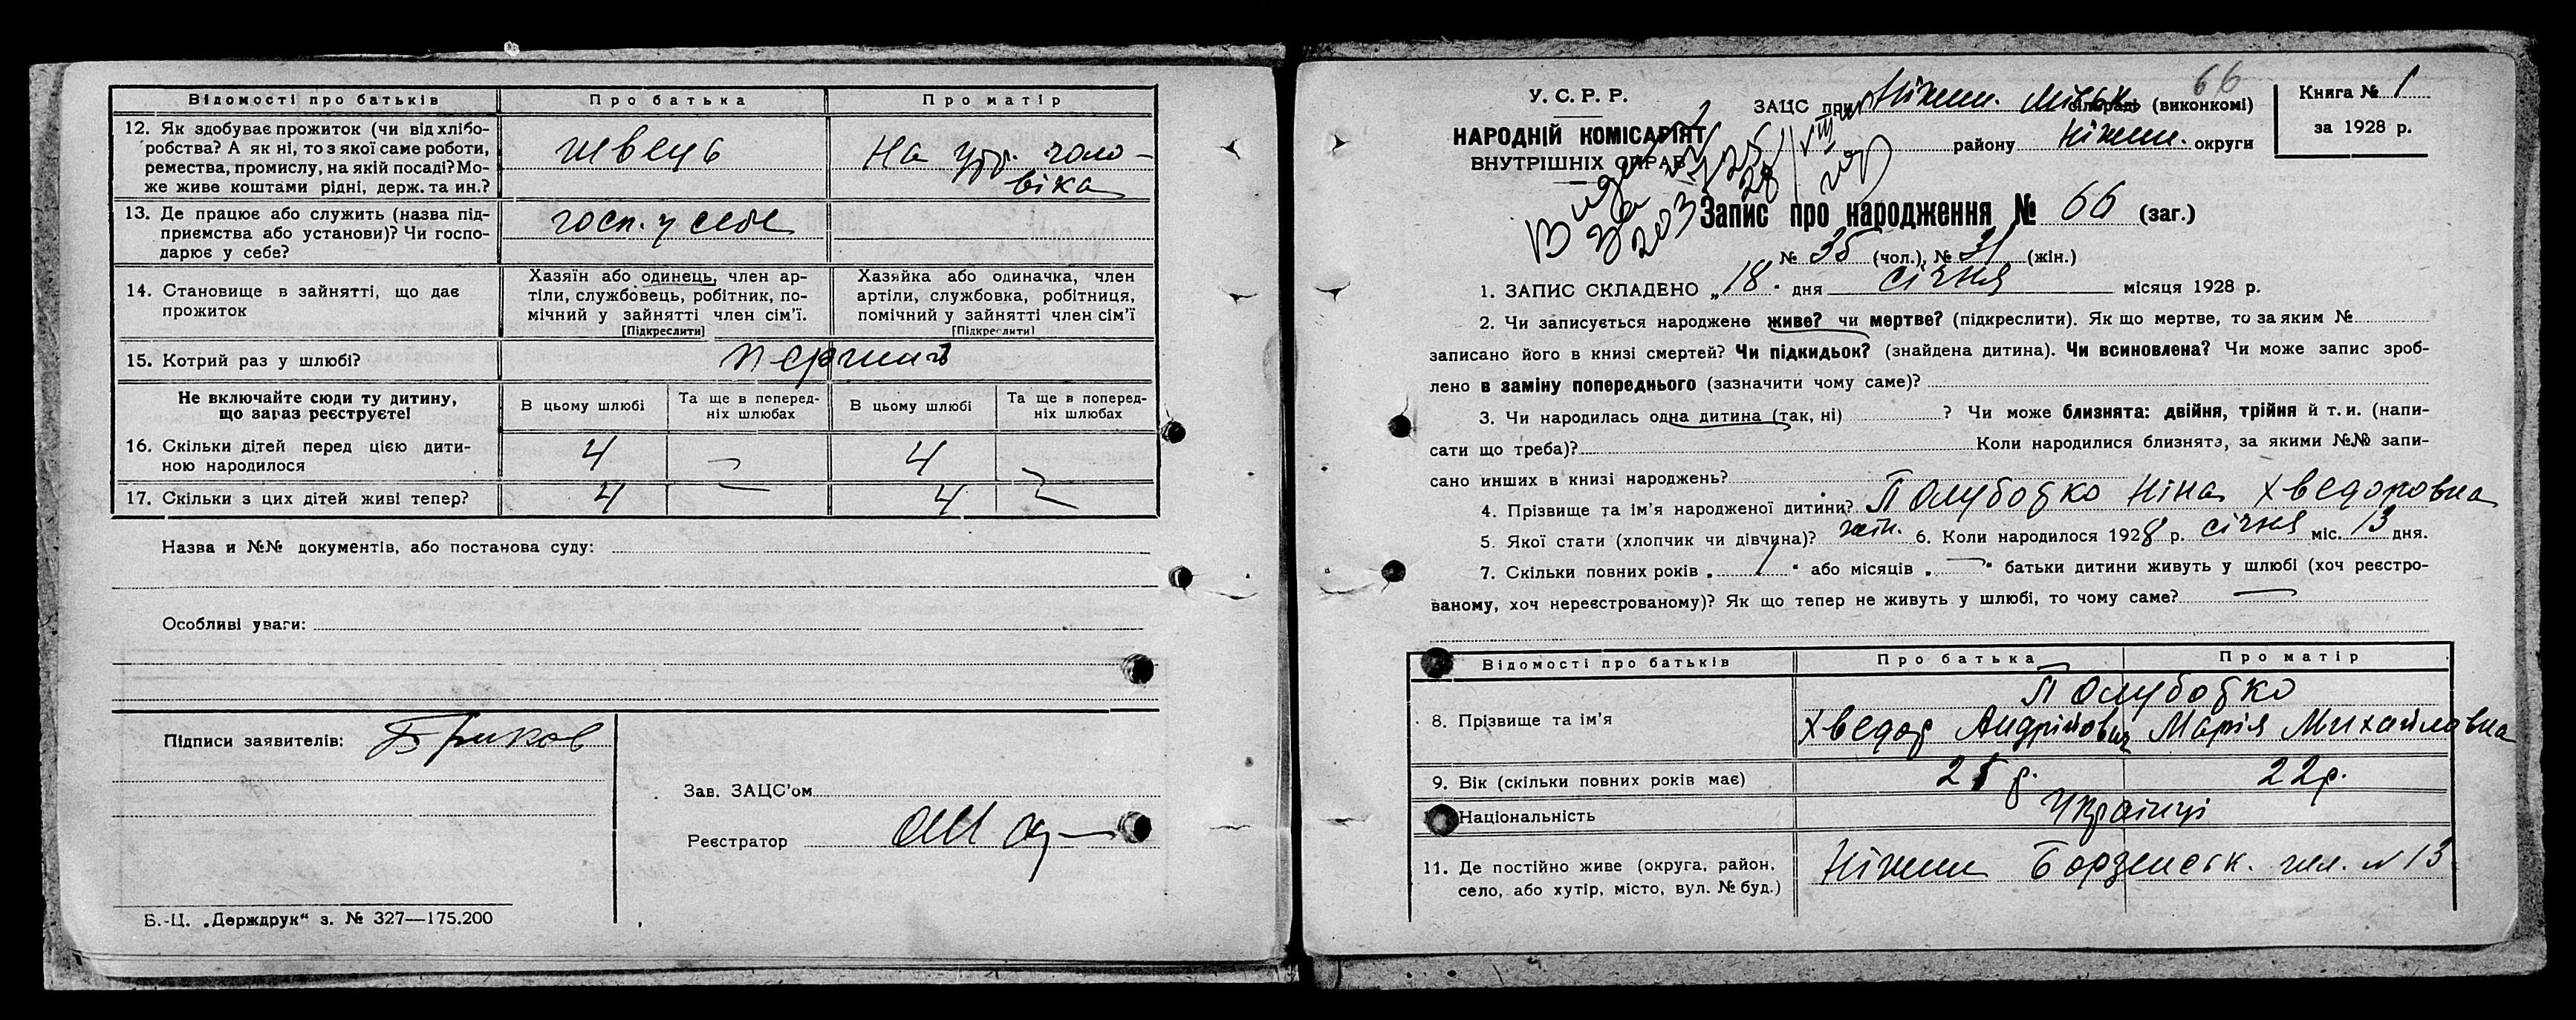 Відомості про батьків Про батька Про матір
12. Як здобуває прожиток (чи від хлібо-
робства? А як ні, то з якої саме роботи,
ремества, промислу, на якій посаді? Мо-
же живе коштами рідні, держ. та ин.?
швець
На утр. чоло-
віка
13. Де працює або служить (назва під-
приємства або установи)? Чи госпо-
дарює у себе?
госп. у себе
14. Становище в зайнятті, що дає
прожиток
Хазяїн або одинець, член ар-
тіли, службовець, робітник, по-
мічний у зайнятті член сім'ї.
[Підкреслити]
Хазяйка або одиначка, член
артіли, службовка, робітниця,
помічний у зайнятті член сім'ї
[Підкреслити]
15. Котрий раз у шлюбі?
Не включайте сюди ту дитину,
що зараз реєструєте!
В цьому шлюбі
Та ще в поперед-
ніх шлюбах
В цьому шлюбі
Та ще в поперед-
ніх шлюбах
16. Скільки дітей перед цією дити-
ною народилося
4 — 4 —
17. Скільки з цих дітей живі тепер? 4 — 4 —
Назва и №№ документів, або постанова суду:
Особливі уваги:
Підписи заявителів:
Зав. ЗАЦС'ом
Реєстратор
Б.-Ц. „Держдрук“ з. № 327—175.200
66
У. С. Р. Р.
НАРОДНІЙ КОМІСАРІЯТ
ВНУТРІШНІХ СПРАВ
ЗАЦС при Ніжин. міськ сільраді (виконкомі)
району Ніжин. округи
Книга № 1
за 1928 р.
Запис про народження № 66 (заг.)
№ 35 (чол.), № 31 (жін.)
1. ЗАПИС СКЛАДЕНО „18“ дня січня місяця 1928 р.
2. Чи записується народжене живе? чи мертве? (підкреслити). Як що мертве, то за яким №
записано його в книзі смертей? Чи підкидьок? (знайдена дитина). Чи всиновлена? Чи може запис зроб-
лено в заміну попереднього (зазначити чому саме)?
3. Чи народилась одна дитина (так, ні) ? Чи може близнята: двійня, трійня й т. и. (напи-
сати що треба)? Коли народилися близнята, за якими №№ запи-
сано инших в книзі народжень?
4. Прізвище та ім'я народженої дитини? Полуботко Ніна Хведоровна
5. Якої стати (хлопчик чи дівчина)? жін. 6. Коли народилося 1928 р. січня міс. 13 дня.
7. Скільки повних років „ “ або місяців „—“ батьки дитини живуть у шлюбі (хоч реєстро-
ваному, хоч нереєстрованому)? Як що тепер не живуть у шлюбі, то чому саме? —
Відомості про батьків Про батька Про матір
Полуботко
8. Прізвище та ім'я Хведор Андрійович Марія Михайловна
9. Вік (скільки повних років має) р. 22 р.
Національність Українці
11. Де постійно живе (округа, район,
село, або хутір, місто, вул. № буд.)
Ніжин Борзенськ. шл. № 13